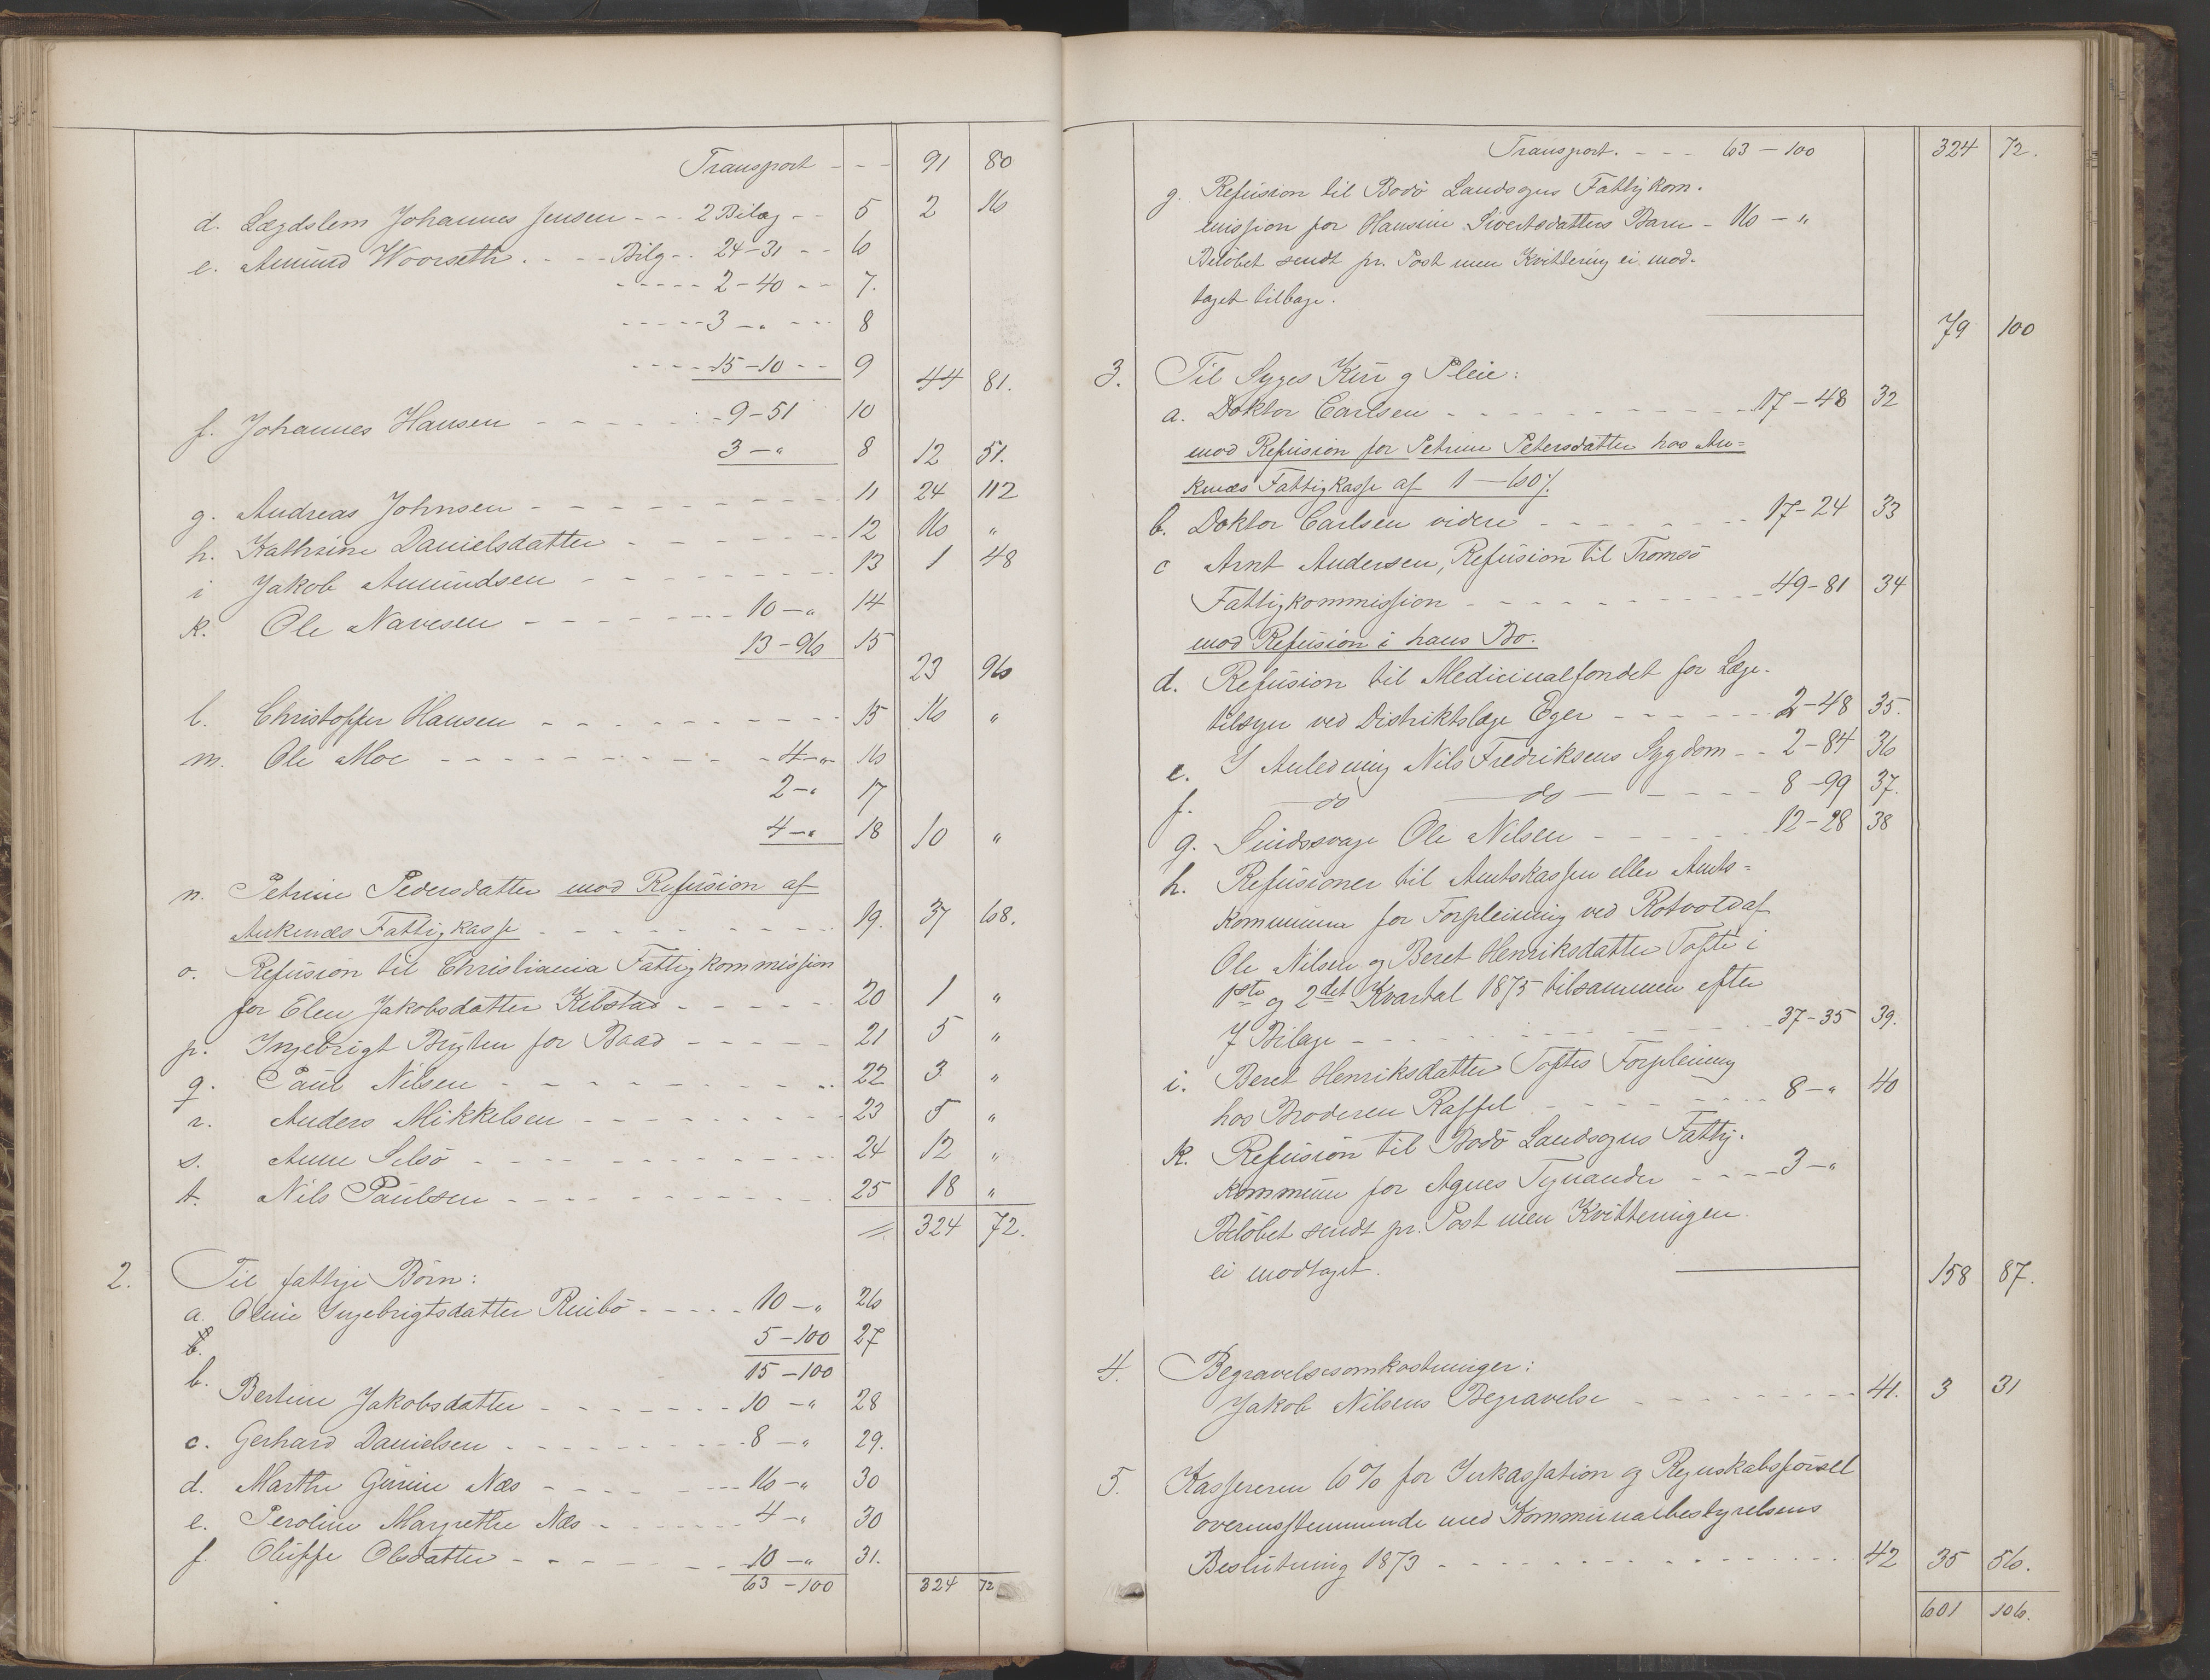 Transport - - - 91 80
d. Lægdslem Johannes Jensen - - - 2 Bilag - - 5 2 16
e. Amund Woorseth. - - - Bilg - - 24-31 - - 6
- - - - - 2-40 - - 7.
- - - - - 3 - " - - - 8
- - - - 15-10 - - 9 44 81.
f. Johannes Hansen - - - - - 9-51 10
3 - " 8 12 51.
g. Andreas Johnsen - - - - - - - - - 11 24 112
h. Kathrine Danielsdatter - - - - - - - 12 16 "
i Jakob Amundsen - - - - - - - - 13 1 48
k. Ole Navesen - - - - - - - 10 - " 14
13-96 15
23 96
l. Christoffer Hansen - - - - - - - - - - 15 16 "
m. Ole Moe - - - - - - - - - - - 4 - " 16
2 - " 17
4 - " 18 10 "
n. Petrine Pedersdatter mod Refusion af
Ankenæs Fattigkasse - - - - - - - - - - 19. 37 68.
o. Refusion til Christiania Fattigkommission
for Elen Jakobsdatter Kilstad - - - - - 20 1 "
p. Ingebrigt for Baad - - - - - 21 5 "
q. Paul Nilsen - - - - - - - - - - 22 3 "
r. Anders Mikkelsen - - - - - - - - 23 5 "
s. Anne Selsö - - - - - - - - - - - 24 12 "
t. Nils Paulsen - - - - - - - - - - 25 18 "
324 72.
2. Til fattige Börn:
a. Oline Ingebrigtsdatter Rinbö - - - - - 10 - " 26
b. 5-100 27
15-100
b. Bertine Jakobsdatter - - - - - - - 10 - " 28
c. Gerhard Danielsen - - - - - - - - - 8 - " 29.
d. Marthe Gurine Næs - - - - - - - 16 - " 30
e. Peroline Margrethe Næs - - - - - - 4 - " 30
f. Oluffe Olsdatter - - - - - - - - 10 - " 31.
63-100 324 72
Transport. - - - 63-100 324 72.
g. Refusion til Bodö Landsogns Fattigkom-
mission for Hansine Sivertsdatters Barn - 16 - "
Belöbet sendt pr. Post men Kvittering ei mod-
taget tilbage.
79 100
3. Til Syges Kur og Pleie:
a. Doktor Carlsen - - - - - - - - - - - 17-48 32
mod Refusion for Petrine Petersdatter hos An=
kenæs Fattigkasse af 1-60 /.
b. Doktor Carlsen videre - - - - - - - - 17-24 33
c Arnt Andersen, Refusion til Tromsö
Fattigkommission - - - - - - - - - - 49-81 34
mod Refusion i hans Bo.
d. Refusion til Medicinalfondet for Læge-
tilsyn ved Distriktslæge Eger - - - - - - 2-48 35.
e. I Anledning Nils Fredriksens Sygdom - - 2-84 36
f. do do - - - - - 8-99 37.
g. Sindssvage Ole Nilsen - - - - - - 12-28 38
h. Refusioner til Amtskassen eller Amts=
kommunen for Forpleining ved Rotvold af
Ole Nilsen og Beret Henriksdatter Tofte i
1ste og 2det Kvartal 1875 tilsammen efter
7 Bilage - - - - - - - - - - - - 37-35 39.
i. Beret Henriksdatter Toftes Forpleining
hos Broderen Raffel - - - - - - - - 8 - " 40
k. Refusion til Bodö Landsogns Fattig-
kommune for Agnes Tynander - - - - 3 - "
Belöbet sendt pr. Post men Kvitteringen
ei modtaget.
158 87.
4. Begravelsesomkostninger:
Jakob Nilsens Begravelse - - - - - - - - 41. 3 31
5. Kassereren 6% for Inkassation og Regnskabsförsel
overensstemmende med Kommunalbestyrelsens
Beslutning 1873 - - - - - - - - - - - - - 42 35 56.
601 106.